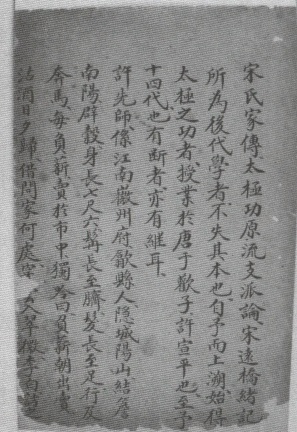 宋氏家傳太極功原流支派論宋遠橋緒記
所為後代學者不失其本也自予而上溯始得
太極之功者授業於唐于歡子許宣平也至予
十四代也有斷者亦有維耳
許先師係江南徽州府歙縣人隱城陽山結簷
南陽辟穀身長七尺六髯長至臍髮長至足行及
奔馬每負薪賣於市中獨吟曰負薪朝出賣
沽酒日夕歸借問家何處穿 入翠微李白訪